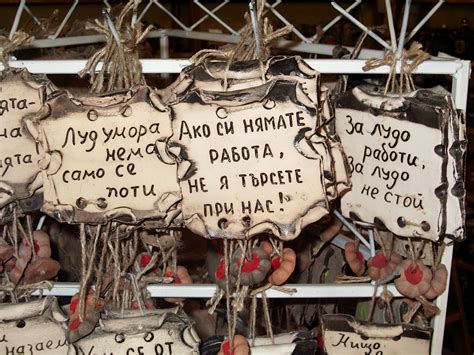 ята-
на
ята
Луд умора
нема
само се
поти
Ако си нямате
работа,
не я търсете
при нас!
За лудо
работи,
за лудо
не стой
Нищо